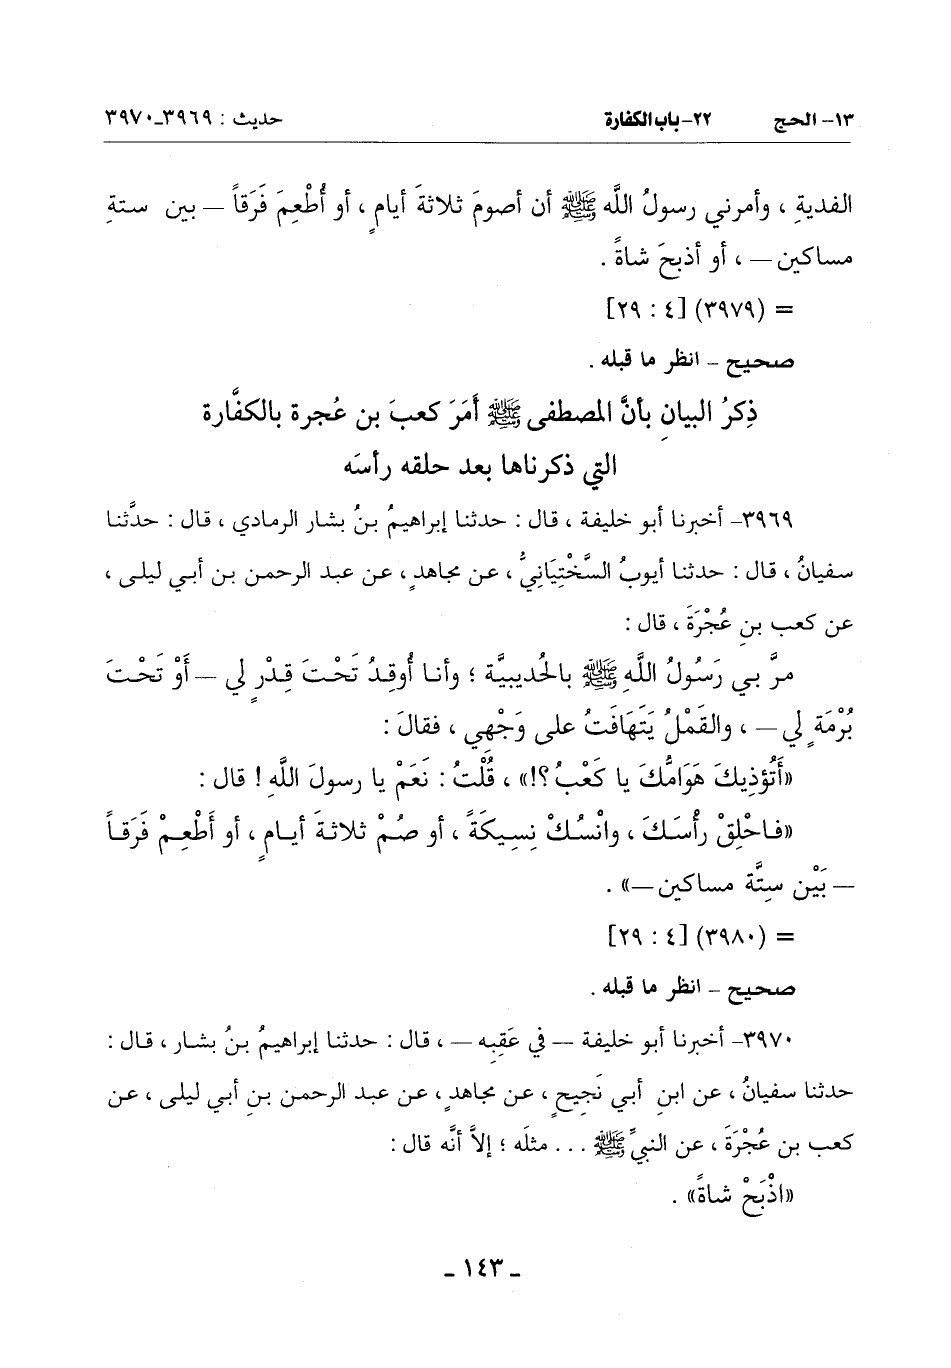 ١٣- الحج ٢٢- باب الكفارة حديث : ٣٩٦٩-٣٩٧٠
الفديةِ ، وأمرني رسولُ اللَّه ﷺ أن أصومَ ثلاثةَ أيامٍ ، أو أُطْعِمَ فَرَقاً — بين ستةِ
مساكين — ، أو أذبحَ شاةً .
= (٣٩٧٩) [٤ : ٢٩]
صحيح – انظر ما قبله .
ذِكرُ البيانِ بأنَّ المصطفى ﷺ أَمَرَ كعبَ بن عُجرة بالكفَّارة
التي ذكرناها بعد حلقه رأسَه
٣٩٦٩- أخبرنا أبو خليفة ، قال : حدثنا إبراهيمُ بنُ بشار الرمادي ، قال : حدَّثنا
سفيانُ ، قال : حدثنا أيوبُ السَّخْتِيَانِيُّ ، عن مجاهدٍ ، عن عبد الرحمن بن أبي ليلى ،
عن كعب بنِ عُجْرَةَ ، قال :
مرَّ بي رَسُولُ اللَّهِ ﷺ بالحُديبيَّة ؛ وأنا أُوقِدُ تَحْتَ قِدْرٍ لي — أَوْ تَحْتَ
بُرْمَةٍ لي — ، والقَمْلُ يَتَهَافَتُ على وَجْهِي ، فقالَ :
«أَتُؤذِيكَ هَوَامُّكَ يا كَعْبُ ؟!» ، قُلْتُ : نَعَمْ يا رسولَ اللَّهِ ! قال :
«فاحْلِقْ رأْسَكَ ، وانْسُكْ نِسِيكَةً ، أو صُمْ ثلاثةَ أيامٍ ، أو أَطْعِمْ فَرَقاً
— بَيْن ستَّة مساكين —» .
= (٣٩٨٠) [٤ : ٢٩]
صحيح – انظر ما قبله .
٣٩٧٠- أخبرنا أبو خليفة — في عَقِبِه — ، قال : حدثنا إبراهيمُ بنُ بشار ، قال :
حدثنا سفيانُ ، عن ابنِ أبي نَجيحٍ ، عن مجاهدٍ ، عن عبد الرحمن بنِ أبي ليلى ، عن
كعب بن عُجْرَةَ ، عن النبيِّ ﷺ ... مثلَه ؛ إلاَّ أنَّه قال :
«اذْبَحْ شاةً» .
- ١٤٣ -